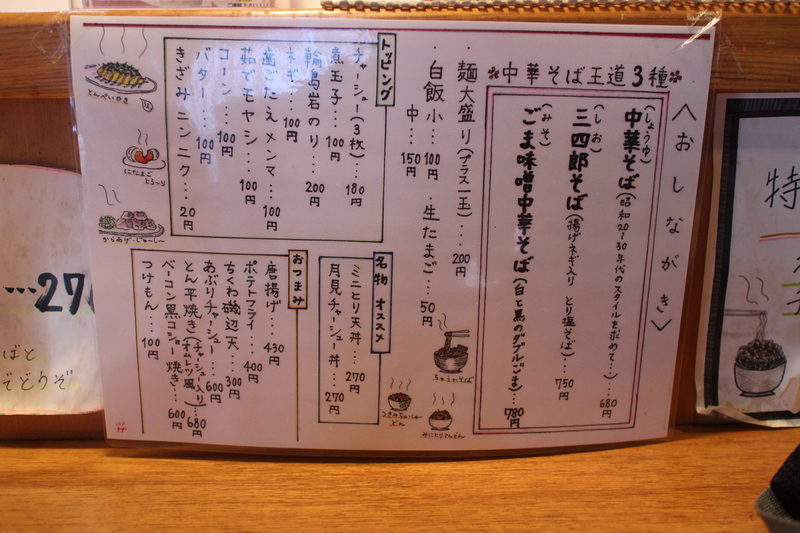 〈おしながき〉
中華そば王道3種
(しょうゆ)
中華そば(昭和20〜30年代のスタイルを求めて…)…680円
(しお)
三四郎そば(揚げネギ入り とり塩そば)…750円
(みそ)
ごま味噌中華そば(白と黒のダブルごま)…780円
・麺大盛り(プラス一玉)…200円
・白飯 小…100円
中…150円
・生たまご…50円
トッピング
チャーシュー(3枚)…180円
煮玉子…100円
輪島岩のり…200円
ネギ…100円
歯ごたえメンマ…100円
茹でモヤシ…100円
コーン…100円
バター…100円
きざみニンニク…20円
名物 オススメ
ミニとり天丼…270円
月見チャーシュー丼…270円
おつまみ
唐揚げ…430円
ポテトフライ…400円
ちくわ磯辺天…300円
あぶりチャーシュー…600円
とん平焼き(チャーシュー入りオムレツ風)…680円
ベーコン黒コショー焼き…600円
つけもん…100円
とんぺいやき
にたまご
とろ〜り
からあげ・じゅーしー
ちゅうかそば
つきみちゃーしゅーどん
みにとりてんどん
特
…270
ばと
ぞどうぞ